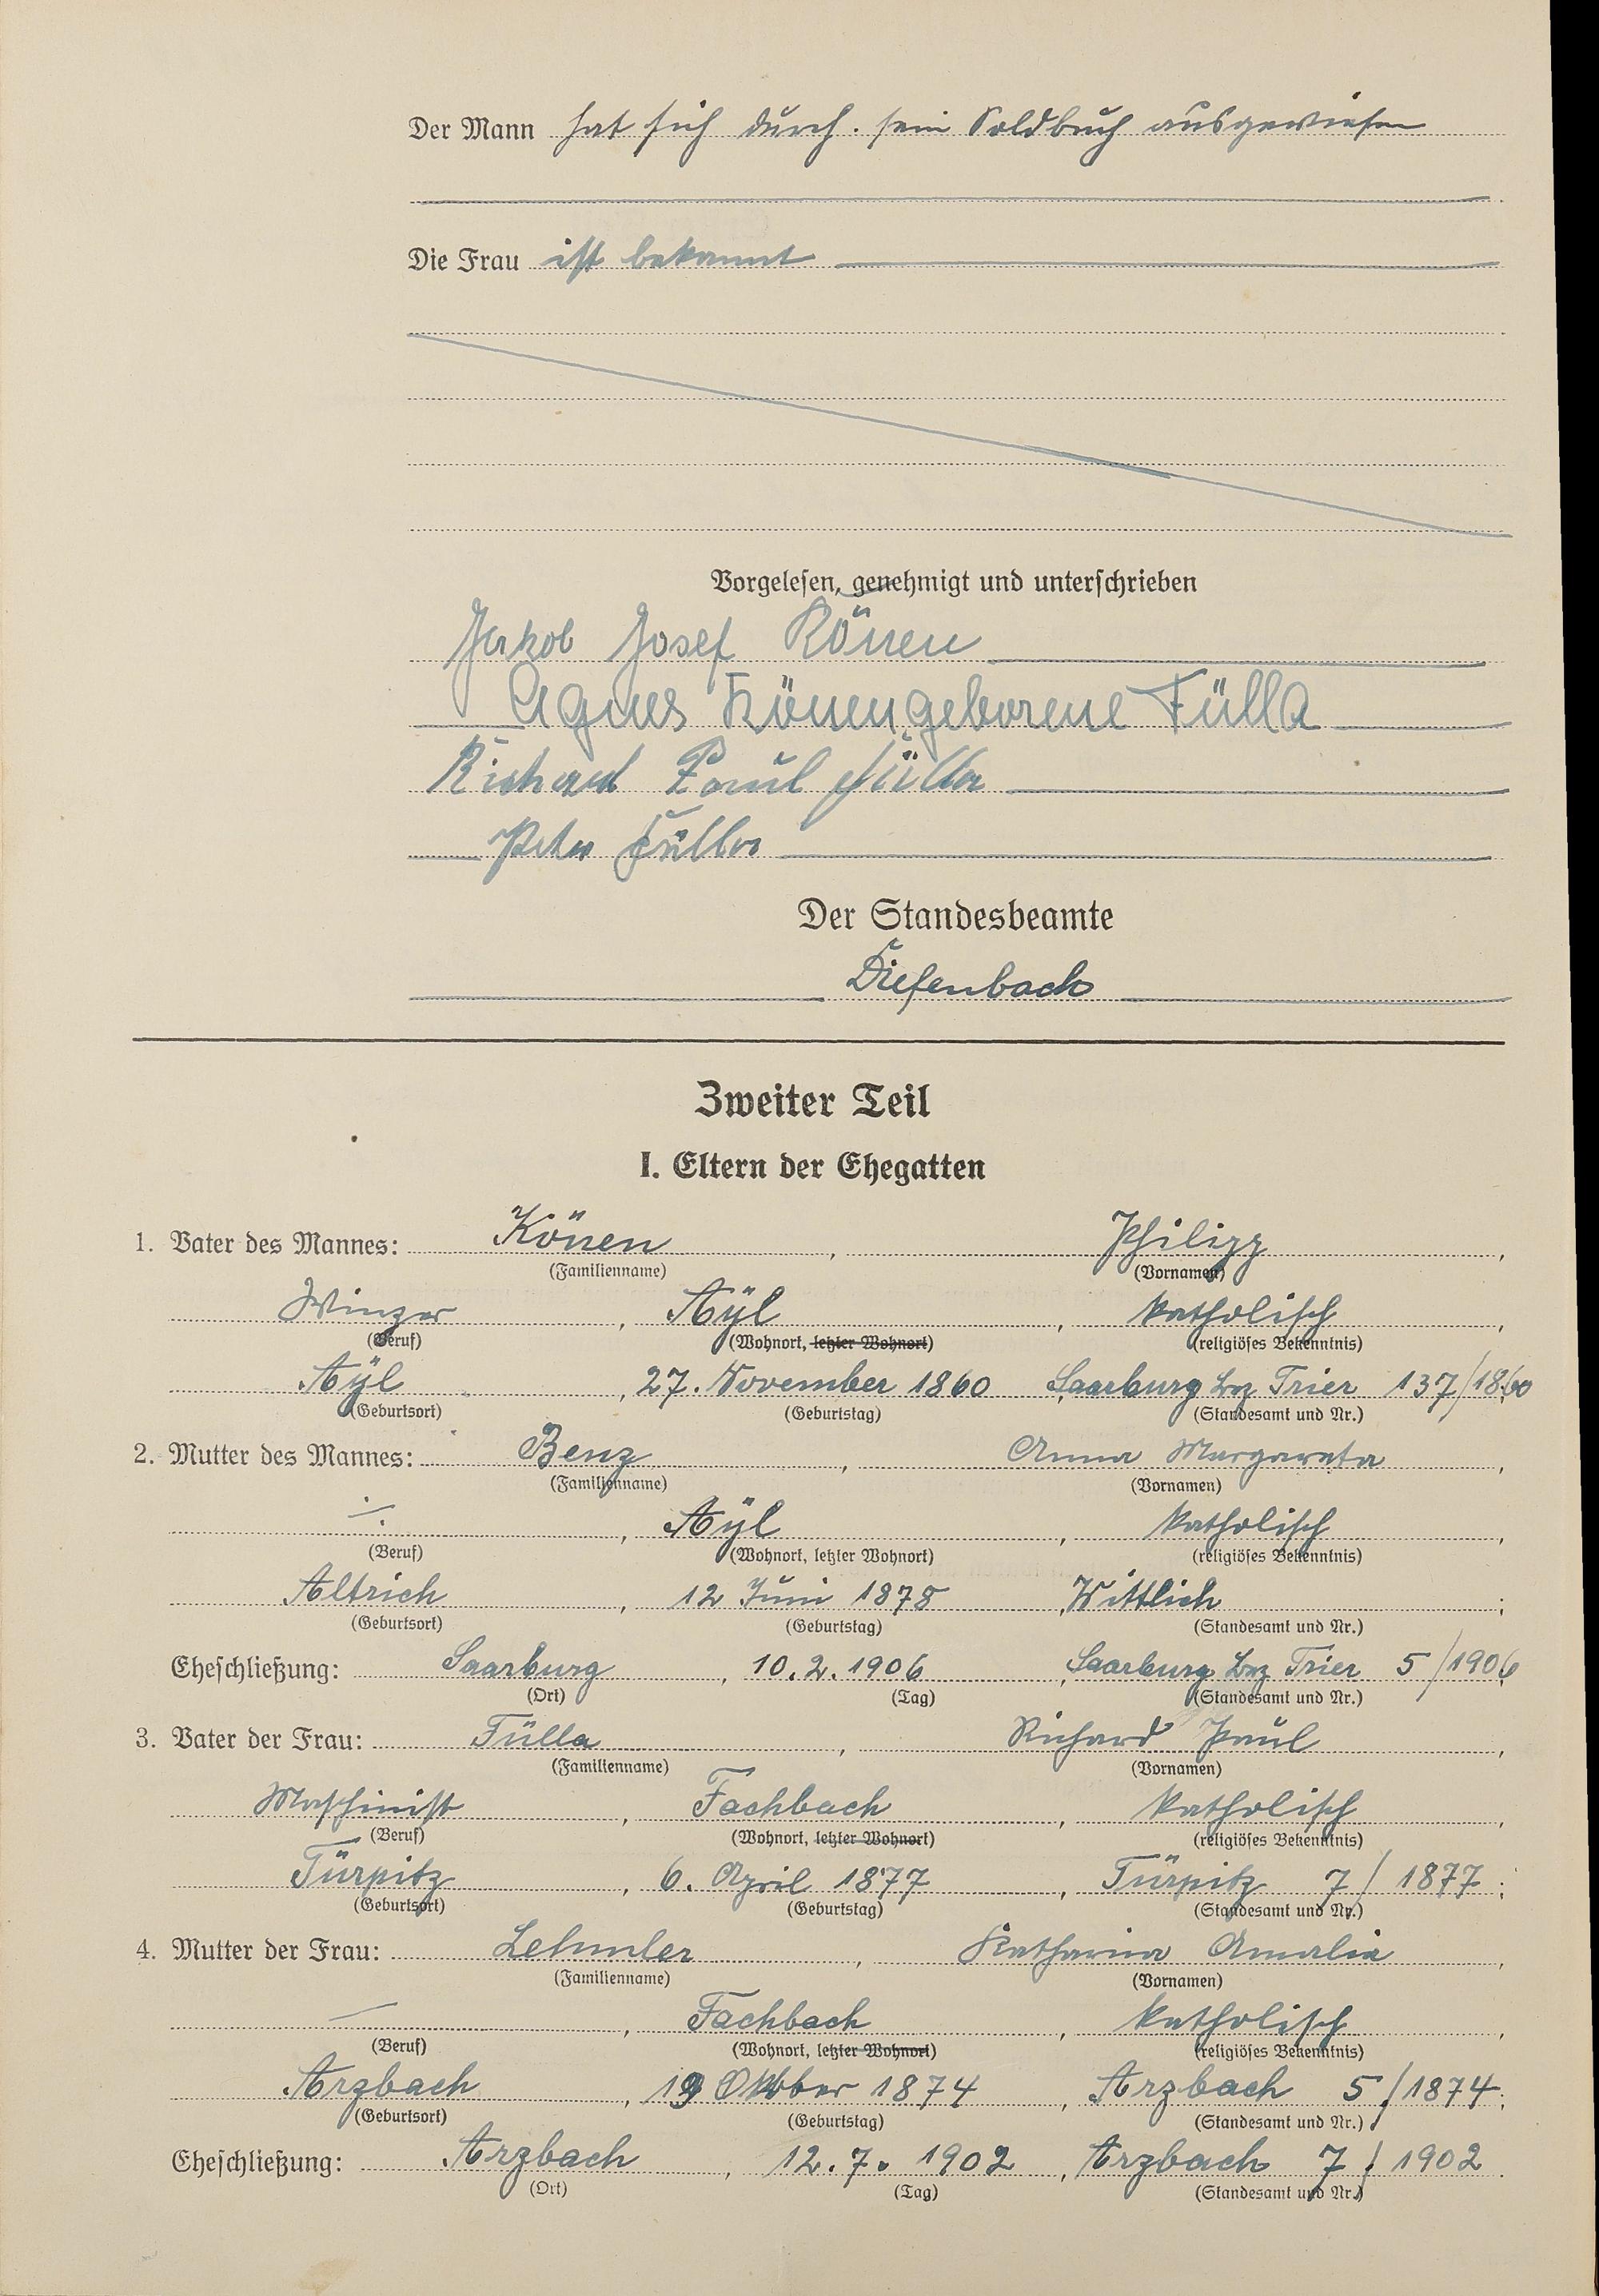 Der Mann hat sich durch. sein Soldbuch ausgewiesen
Die Frau ist bekannt
Vorgelesen, genehmigt und unterschrieben
Jakob Josef Könen
Agnes Könen geborene Fülla
Richard Paul Fülla
Peter Fülla
Der Standesbeamte
Diefenbach
Zweiter Teil
I. Eltern der Ehegatten
1. Vater des Mannes: Könen, Philipp,
(Familienname) (Vornamen)
Winzer, Aÿl, katholisch,
(Beruf) (Wohnort, letzter Wohnort) (religiöses Bekenntnis)
Aÿl, 27. November 1860, Saarburg Bez Trier 137/1860
(Geburtsort) (Geburtstag) (Standesamt und Nr.)
2. Mutter des Mannes: Benz, Anna Margareta,
(Familienname) (Vornamen)
÷, Aÿl, katholisch,
(Beruf) (Wohnort, letzter Wohnort) (religiöses Bekenntnis)
Altrich, 12 Juni 1878, Wittlich;
(Geburtsort) (Geburtstag) (Standesamt und Nr.)
Eheschließung: Saarburg, 10.2.1906, Saarburg Bez Trier 5/1906
(Ort) (Tag) (Standesamt und Nr.)
3. Vater der Frau: Fülla, Richard Paul,
(Familienname) (Vornamen)
Maschinist, Fachbach, katholisch,
(Beruf) (Wohnort, letzter Wohnort) (religiöses Bekenntnis)
Türpitz, 6. April 1877, Türpitz 7/1877;
(Geburtsort) (Geburtstag) (Standesamt und Nr.)
4. Mutter der Frau: Lehmler, Katharina Amalia,
(Familienname) (Vornamen)
—, Fachbach, katholisch,
(Beruf) (Wohnort, letzter Wohnort) (religiöses Bekenntnis)
Arzbach, Oktober 1874, Arzbach 5/1874;
(Geburtsort) (Geburtstag) (Standesamt und Nr.)
Eheschließung: Arzbach, 12.7.1902, Arzbach 7/1902.
(Ort) (Tag) (Standesamt und Nr.)